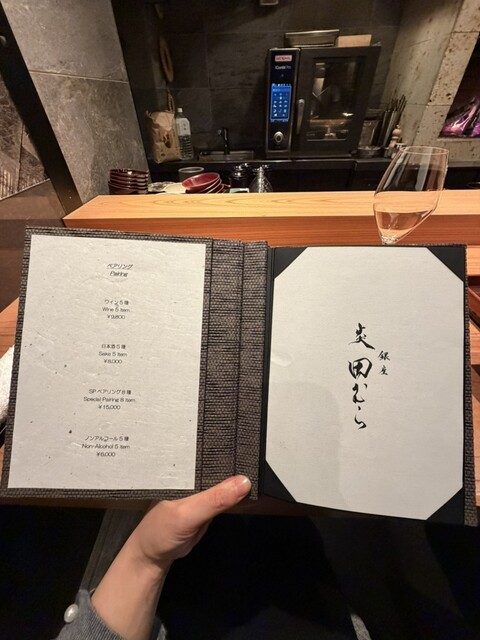 ペアリング
Pairing
ワイン5種
Wine 5 item
¥9,800
日本酒5種
Sake 5 item
¥8,000
SPペアリング8種
Special Pairing 8 item
¥15,000
ノンアルコール5種
Non-Alcohol 5 item
¥6,000
銀座
炎田むら